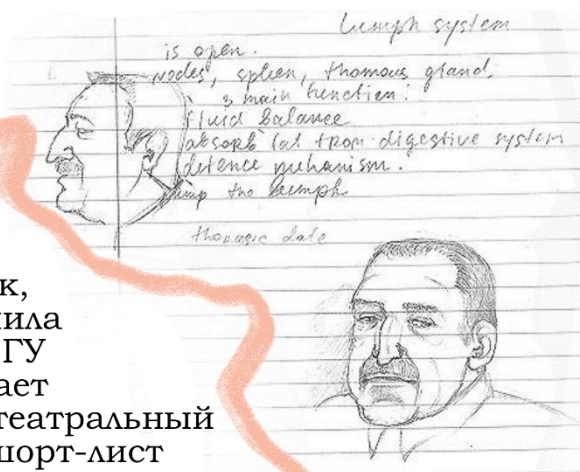 Lumph system
is open.
Nodes, spleen, thomous gland.
3 main function:
fluid balance
absorb fat from digestive system
defence mehanism.
pump the lumph
thorasic date
к,
ила
ГУ
ает
театральный
шорт-лист